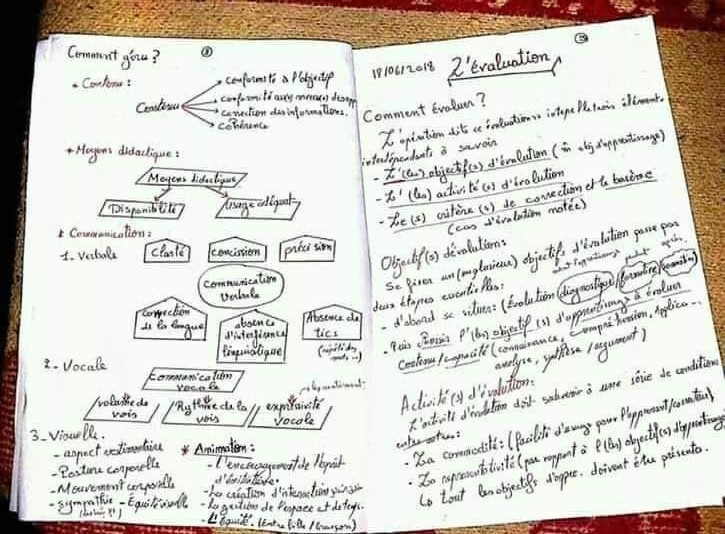 Comment gérer ?
* Contenu :
Contenu
conformité à l'objectif
conformité aux niveaux des app
correction des informations.
cohérence
* Moyens didactique :
Moyens didactique
Disponibilité
Usage adéquat
* Communication :
1- Verbale
Clarté
concission
précision
Communication
Verbale
Correction
de la langue
absence
d'interférence
linguistique
Absence de
tics
(répété des
mots ...)
2- Vocale
Communication
vocale
volume de
voix
Rythme de la
voix
expressivité
vocale
3- Visuelle.
- aspect vestimentaire
- Posture corporelle
- Mouvement corporelle
- Sympathie - Équité visuelle
* Animation :
- L'encouragement de l'esprit
d'initiative.
- La création d'interaction
- La gestion de l'espace et de temps.
- L'Équité. (Entre fille / Garçon)
18/06/2018
L'évaluation
Comment évaluer ?
L'opération dite ce évaluation interpelle trois éléments
interdépendants à savoir
- L' (les) objectif(s) d'évolution (m obj d'apprentissage)
- L' (les) activité(s) d'évolution
- Le(s) critère(s) de correction et le barème
(cas d'évaluation notée)
Objectif(s) d'évolution :
Se fixer un (ou plusieurs) objectifs d'évalution passe par
deux étapes essentielles :
avant apprentissage pendant après
- d'abord se situer : (Évolution diagnostique / formative / sommative)
- Puis Choisir l'(les) objectif(s) d'apprentissage à évaluer
Contenu / capacité (connaissance, compréhension, applica...
analyse, synthèse, jugement)
Activité(s) d'évalution :
L'activité d'évalution doit subvenir à une série de condition
entre autres :
- La commodité : (facilité d'usage pour l'apprenant / correcteur)
- La représentativité (par rapport à l'(les) objectif(s) d'apprentissage
↳ tout les objectifs d'appr. doivent être présenta.